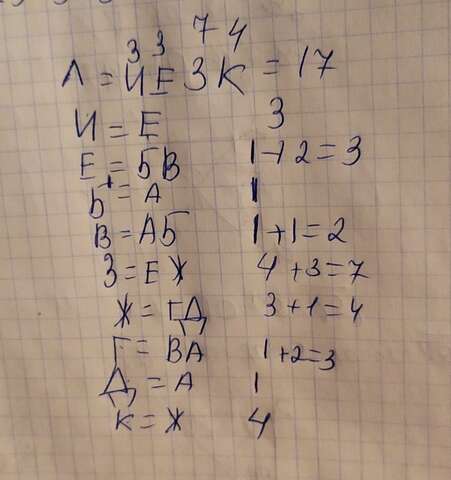 3 3 7 4
Л = ИЕЗК = 17
И = Е 3
Е = БВ 1+2=3
Б = А 1
В = АБ 1+1=2
З = ЕЖ 4+3=7
Ж = ГД 3+1=4
Г = ВА 1+2=3
Д = А 1
К = Ж 4